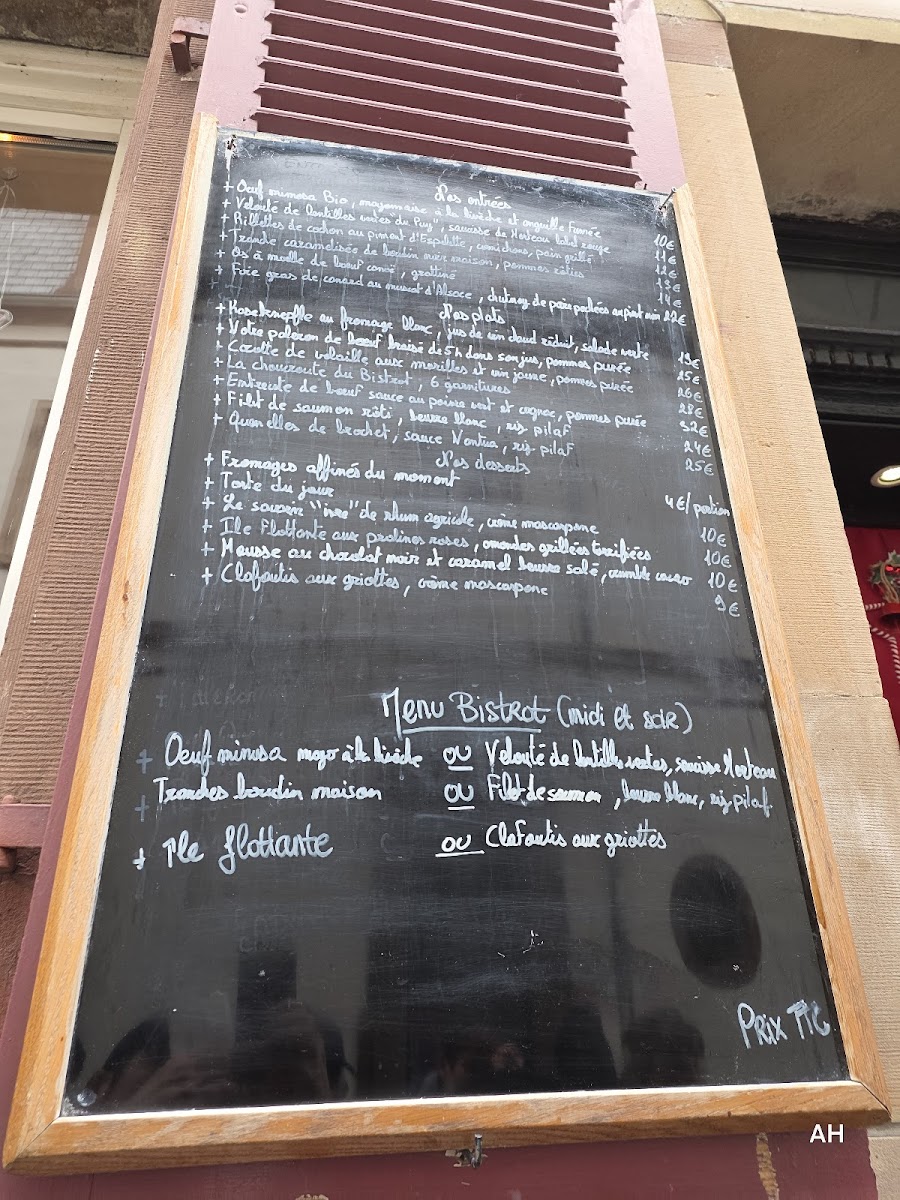 Nos entrées
+ Oeuf mimosa Bio, mayonnaise à la livèche et anguille Fumée 10€
+ Velouté de lentilles vertes du Puy, saucisse de Morteau label rouge 11€
+ Rillettes de cochon au piment d'Espelette, cornichons, pain grillé 12€
+ Tranche caramélisée de boudin noir maison, pommes rôties 13€
+ Os à moelle de boeuf, gratiné 14€
+ Foie gras de canard au muscat d'Alsace, chutney de poires pochées au pinot noir 22€
Nos plats
+ Kaseknepfle au fromage blanc, jus de vin chaud réduit, salade verte 19€
+ Votre paleron de boeuf braisé de 5h dans son jus, pommes purée 25€
+ Cocotte de volaille aux morilles et vin jaune, pommes purée 26€
+ La choucroute du Bistrot, 6 garnitures 28€
+ Entrecôte de boeuf sauce au poivre vert et cognac, pommes purée 32€
+ Filet de saumon rôti, beurre blanc, riz pilaf 24€
+ Quenelles de brochet, sauce Nantua, riz pilaf 25€
Nos desserts
+ Fromages affinés du moment 4€/portion
+ Tarte du jour
+ Le savarin "ivre" de rhum agricole, crème mascarpone 10€
+ Ile Flottante aux pralines roses, amandes grillées torréfiées 10€
+ Mousse au chocolat noir et caramel beurre salé, crumble cacao 10€
+ Clafoutis aux griottes, crème mascarpone 9€
Menu Bistrot (midi et soir)
+ Oeuf mimosa mayo à la livèche ou Velouté de lentilles vertes, saucisse Morteau
+ Tranches boudin maison ou Filet de saumon, beurre blanc, riz pilaf
+ Ile flottante ou Clafoutis aux griottes
Prix TTC
AH